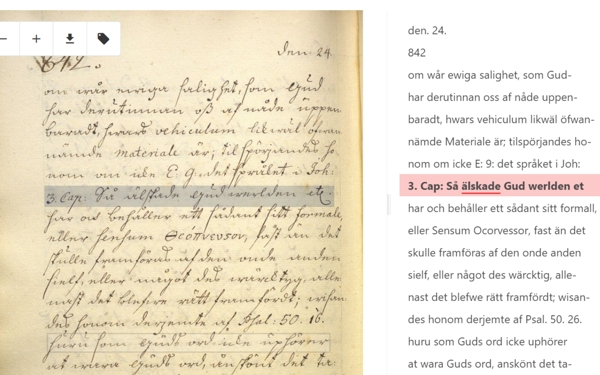 den 24.
842.
om wår ewiga salighet, som Gud
har derutinnan oß af nåde uppen-
baradt, hwars vehiculum likwäl öfwan-
nämde Materiale är; tilspörjandes ho-
nom om icke E: 9. det språket i Joh:
3. Cap: Så älskade Gud werlden etc
har och behåller ett sådant sitt formale,
eller Sensum fast än det
skulle framföras af den onde anden
sielf, eller något des wärcktyg, alle-
nast det blefwe rätt framfördt; wisan-
des honom derjemte af Psal: 50. 16.
huru som Guds ord icke uphörer
at wara Guds ord, anskönt det ta-
den. 24.
842
om wår ewiga salighet, som Gud-
har derutinnan oss af nåde uppen-
baradt, hwars vehiculum likwäl öfwan-
nämde Materiale är; tilspörjandes ho-
nom om icke E: 9: det språket i Joh:
3. Cap: Så älskade Gud werlden et
har och behåller ett sådant sitt formall,
eller Sensum Ocorvessor, fast än det
skulle framföras af den onde anden
sielf, eller något des wärcktig, alle-
nast det blefwe rätt framfördt; wisan-
des honom derjemte af Psal. 50. 26.
huru som Guds ord icke uphörer
at wara Guds ord, anskönt det ta-